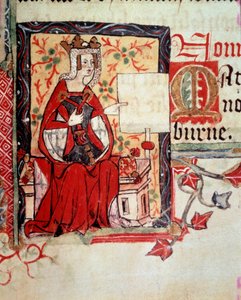 Nom
Mat
no
burne.